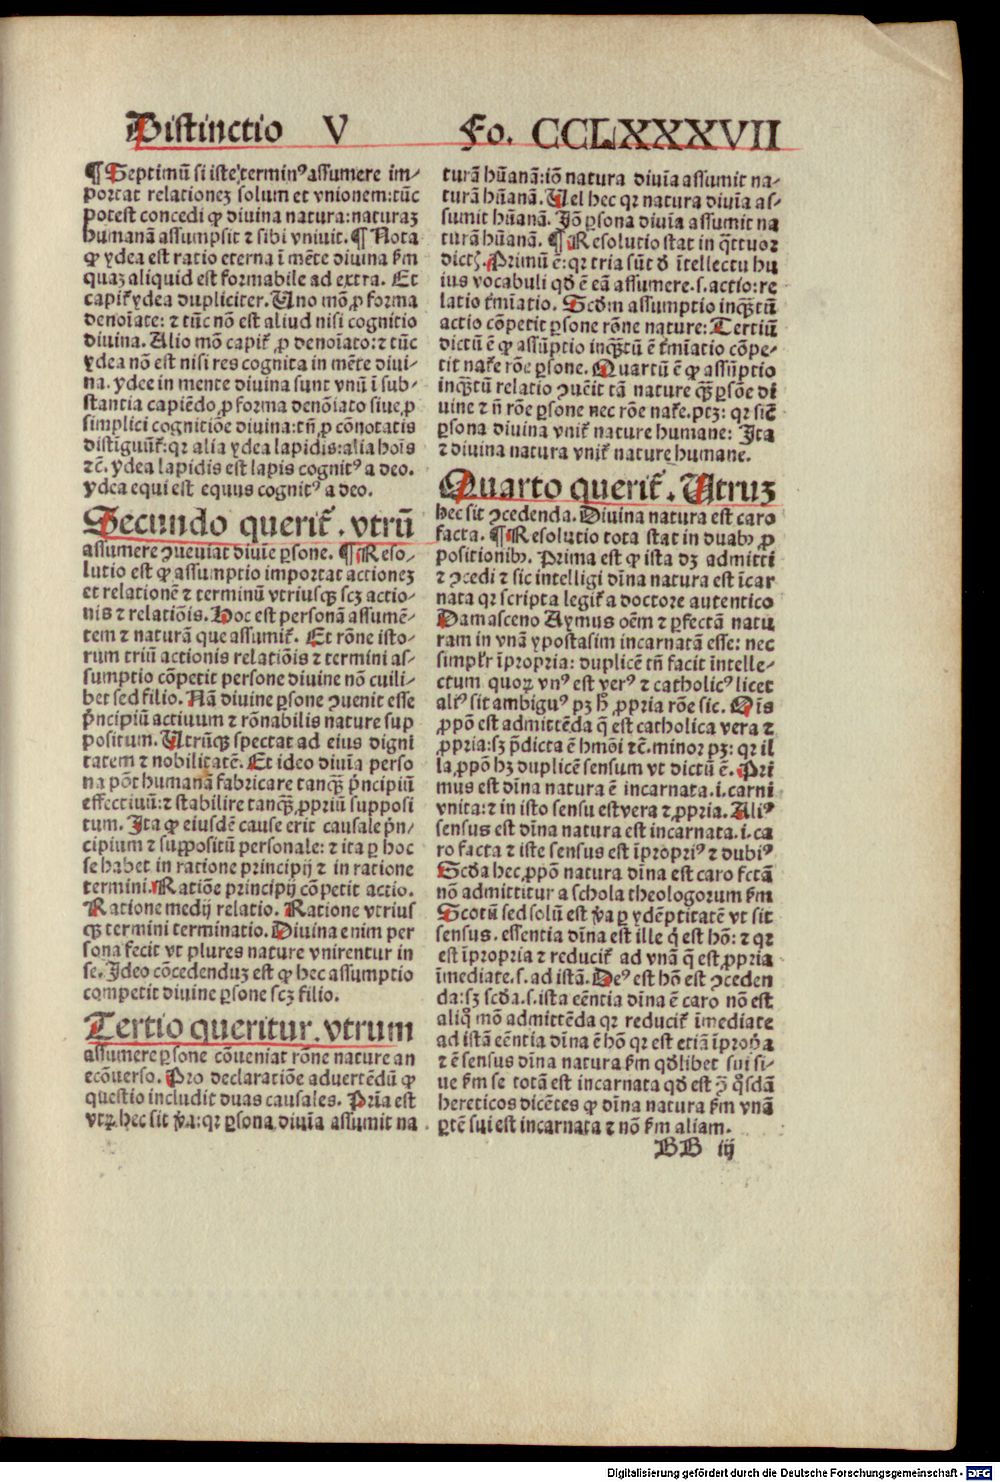 Distinctio V Fo. CCLXXXVII
¶ Septimū si iste terminꝰ assumere im-
portat relationeꝫ solum et vnionem: tūc
potest concedi ꝙ divina natura: naturaꝫ
humanā assumpsit ⁊ sibi vniuit. ¶ Nota
ꝙ ydea est ratio eterna ī mēte divina ẜm
quaꝫ aliquid est formabile ad extra. Et
capit᷑ ydea dupliciter. Uno mō ꝓ forma
denoīate: ⁊ tūc nō est aliud nisi cognitio
divina. Alio mō capit᷑ ꝓ denoīato: ⁊ tūc
ydea nō est nisi res cognita in mēte divi-
na. ydee in mente divina sunt vnū ī sub-
stantia capiēdo ꝓ forma denōiato siue ꝓ
simplici cognitiōe divina: tn̄ ꝓ cōnotatis
distīguūt᷑: qr alia ydea lapidis: alia hoīs
⁊c̄. ydea lapidis est lapis cognitꝰ a deo.
ydea equi est equus cognitꝰ a deo.
Secundo querit᷑. vtrū
assumere ꝯueviat divīe ꝑsone. ¶ Reso-
lutio est ꝙ assumptio importat actioneꝫ
et relationē ⁊ terminū vtriusqꝫ scꝫ actio-
nis ⁊ relatiōis. Hoc est personā assumē-
tem ⁊ naturā que assumit᷑. Et rōne isto-
rum triū actionis relatiōis ⁊ termini as-
sumptio cōpetit persone divine nō cuili-
bet sed filio. Nā divine ꝑsone ꝯuenit esse
pͥncipiū actiuum ⁊ rōnabilis nature sup
positum. Utrūqꝫ spectat ad eius digni
tatem ⁊ nobilitatē. Et ideo divīa perso
na pōt humanā fabricare tanqꝫ̄ pͥncipiū
effectiuū: ⁊ stabilire tanqꝫ̄ ꝓpriū supposi
tum. Ita ꝙ eiusdē cause erit causale pͥn-
cipium ⁊ suppositū personale: ⁊ ita ꝑ hoc
se habet in ratione principij ⁊ in ratione
termini. Ratiōe principij cōpetit actio.
Ratione medij relatio. Ratione vtrius
qꝫ termini terminatio. Divina enim per
sona fecit vt plures nature vnirentur in
se. Ideo cōcedenduꝫ est ꝙ hec assumptio
competit divine ꝑsone scꝫ filio.
Tertio queritur. vtrum
assumere ꝑsone cōveniat rōne nature an
ecōverso. Pro declaratiōe advertēdū ꝙ
questio includit duas causales. Pͥma est
vtꝝ hec sit ꝟa: qr ꝑsona divīa assumit na
turā hūanā: iō natura divīa assumit na-
turā hūanā. Uel hec qr natura divīa as-
sumit hūanā. Iō ꝑsona divīa assumit na
turā hūanā. ¶ Resolutio stat in qͣttuor
dictꝭ. Primū ē: qr tria sūt ꝺ̄ ītellectu hu
ius vocabuli qd̄ ē eā assumere. s. actio: re
latio t᷑mīatio. Scd̄m assumptio inqͣꝫtū
actio cōpetit ꝑsone rōne nature: Tertiū
dictū ē ꝙ assūptio inqͣꝫtū ē t᷑mīatio cōpe-
tit nat᷑e rōe ꝑsone. Quartū ē ꝙ assūptio
inqͣꝫtū relatio ꝯuēit tā nature qꝫ̄ ꝑsōe di
vine ⁊ n̄ rōe ꝑsone nec rōe nat᷑e. ptꝫ: qr sic̄
ꝑsona divina vnit᷑ nature humane: Ita
⁊ divina natura vnit᷑ nature humane.
Quarto querit᷑. Utruꝫ
hec sit ꝯcedenda. Divina natura est caro
facta. ¶ Resolutio tota stat in duabꝰ ꝓ
positionibꝰ. Prima est ꝙ ista dꝫ admitti
⁊ ꝯcedi ⁊ sic intelligi dīna natura est īcar
nata qr scripta legit᷑ a doctore autentico
Damasceno Aymus oēm ⁊ ꝑfectā natu
ram in vnā ypostasim incarnatā esse: nec
simplr̄ īpropria: duplicē tn̄ facit īntelle-
ctum quoꝝ vnꝰ est verꝰ ⁊ catholicꝰ licet
altꝰ sit ambiguꝰ pꝫ h̄ ꝓpria rōe sic. Oīs
ꝓpō est admittēda q̄ est catholica vera ⁊
ꝓpria: sꝫ p̄dicta ē hmōi ⁊c̄. minor pꝫ: qr il
la ꝓpō hꝫ duplicē sensum vt dictū ē. Pri
mus est dīna natura ē incarnata. i. carni
vnita: ⁊ in isto sensu est vera ⁊ ꝓpria. Aliꝰ
sensus est dīna natura est incarnata. i. ca
ro facta ⁊ iste sensus est īpropriꝰ ⁊ dubiꝰ
Scd̄a hec ꝓpō natura dīna est caro fctā
nō admittitur a schola theologorum ẜm
Scotū sed solū est ꝟa ꝑ ydēptitatē vt sit
sensus. essentia dīna est ille qͥ est hō: ⁊ qr
est īpropria ⁊ reducit᷑ ad vnā q̄ est ꝓpria
īmediate. s. ad istā. Deꝰ est hō est ꝯceden
da: sꝫ scd̄a. s. ista eēntia dīna ē caro nō est
aliqͦ mō admittēda qr reducit᷑ īmediate
ad istā eēntia dīna ē hō qr est etiā īpropͥa
⁊ ē sensus dīna natura ẜm qd̄libet sui si-
ue ẜm se totā est incarnata qd̄ est ꝯ̄ qͦsdā
hereticos dicētes ꝙ dīna natura ẜm vnā
ꝑtē sui est incarnata ⁊ nō ẜm aliam.
BB iij
Digitalisierung gefördert durch die Deutsche Forschungsgemeinschaft - DFG